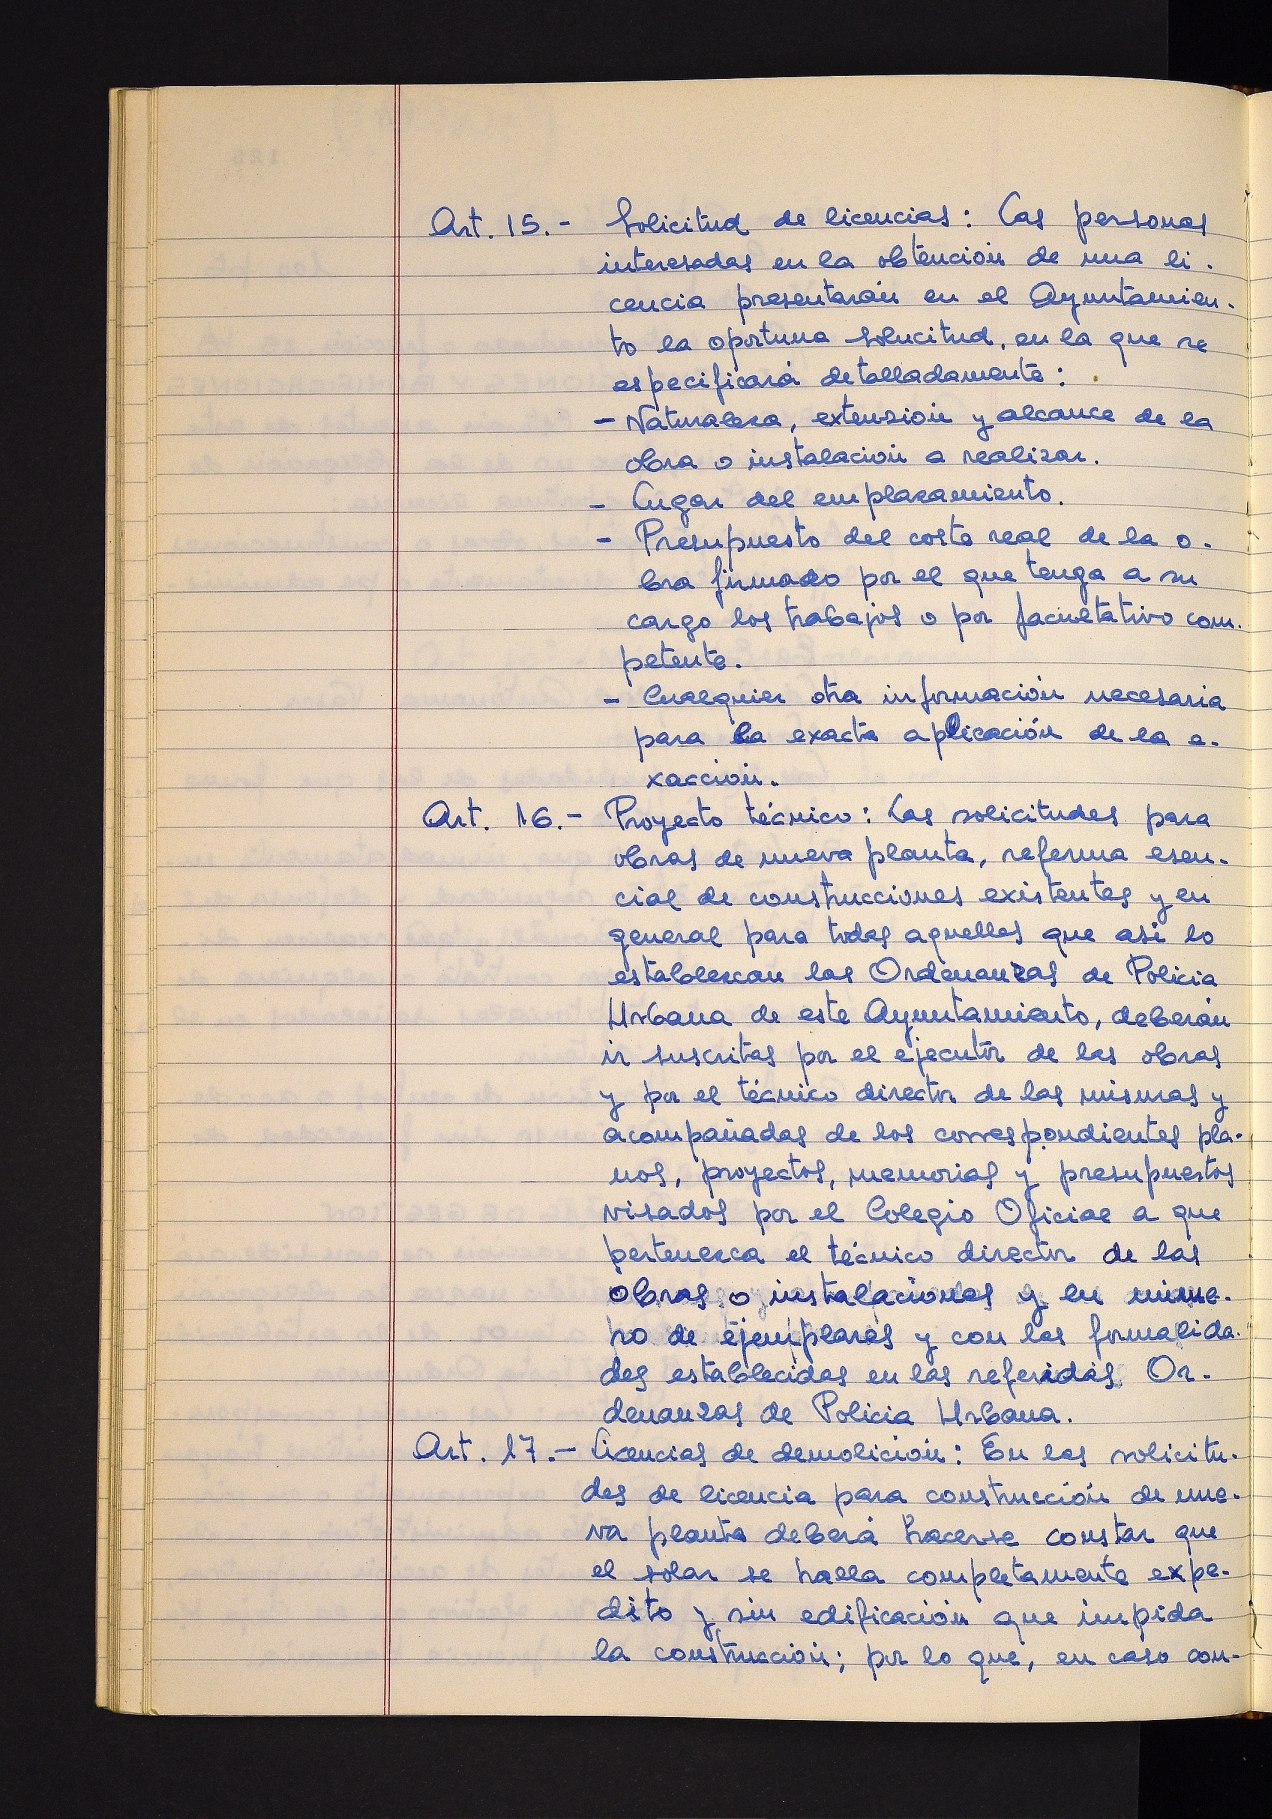 Art. 15.- Solicitud de licencias: Las personas
interesadas en la obtención de una li-
cencia presentarán en el Ayuntamien-
to la oportuna solucitud, en la que se
especificará detalladamente:
- Naturaleza, extensión y alcance de la
obra o instalación a realizar.
- Lugar del emplazamiento.
- Presupuesto del costo real de la o-
bra firmado por el que tenga a su
cargo los trabajos o por facultativo com-
petente.
- Cualquier otra información necesaria
para la exacta aplicación de la e-
xacción.
Art. 16.- Proyecto técnico: Las solicitudes para
obras de nueva planta, reforma esen-
cial de construcciones existentes y en
general para todas aquellas que asi lo
establezcan las Ordenanzas de Policia
Urbana de este Ayuntamiento, deberán
ir suscritas por el ejecutor de las obras
y por el técnico director de las mismas y
acompañadas de los correspondientes pla-
nos, proyectos, memorias y presupuestos
visados por el Colegio Oficial a que
pertenezca el técnico director de las
obras o instalaciones y en núme-
ro de ejemplares y con las formalida-
des establecidas en las referidas Or-
denanzas de Policia Urbana.
Art. 17.- Licencias de demolición: En las solicitu-
des de licencia para construcción de nue-
va planta deberá hacerse constar que
el solar se halla completamente expe-
dito y sin edificación que impida
la construcción; por lo que, en caso con-